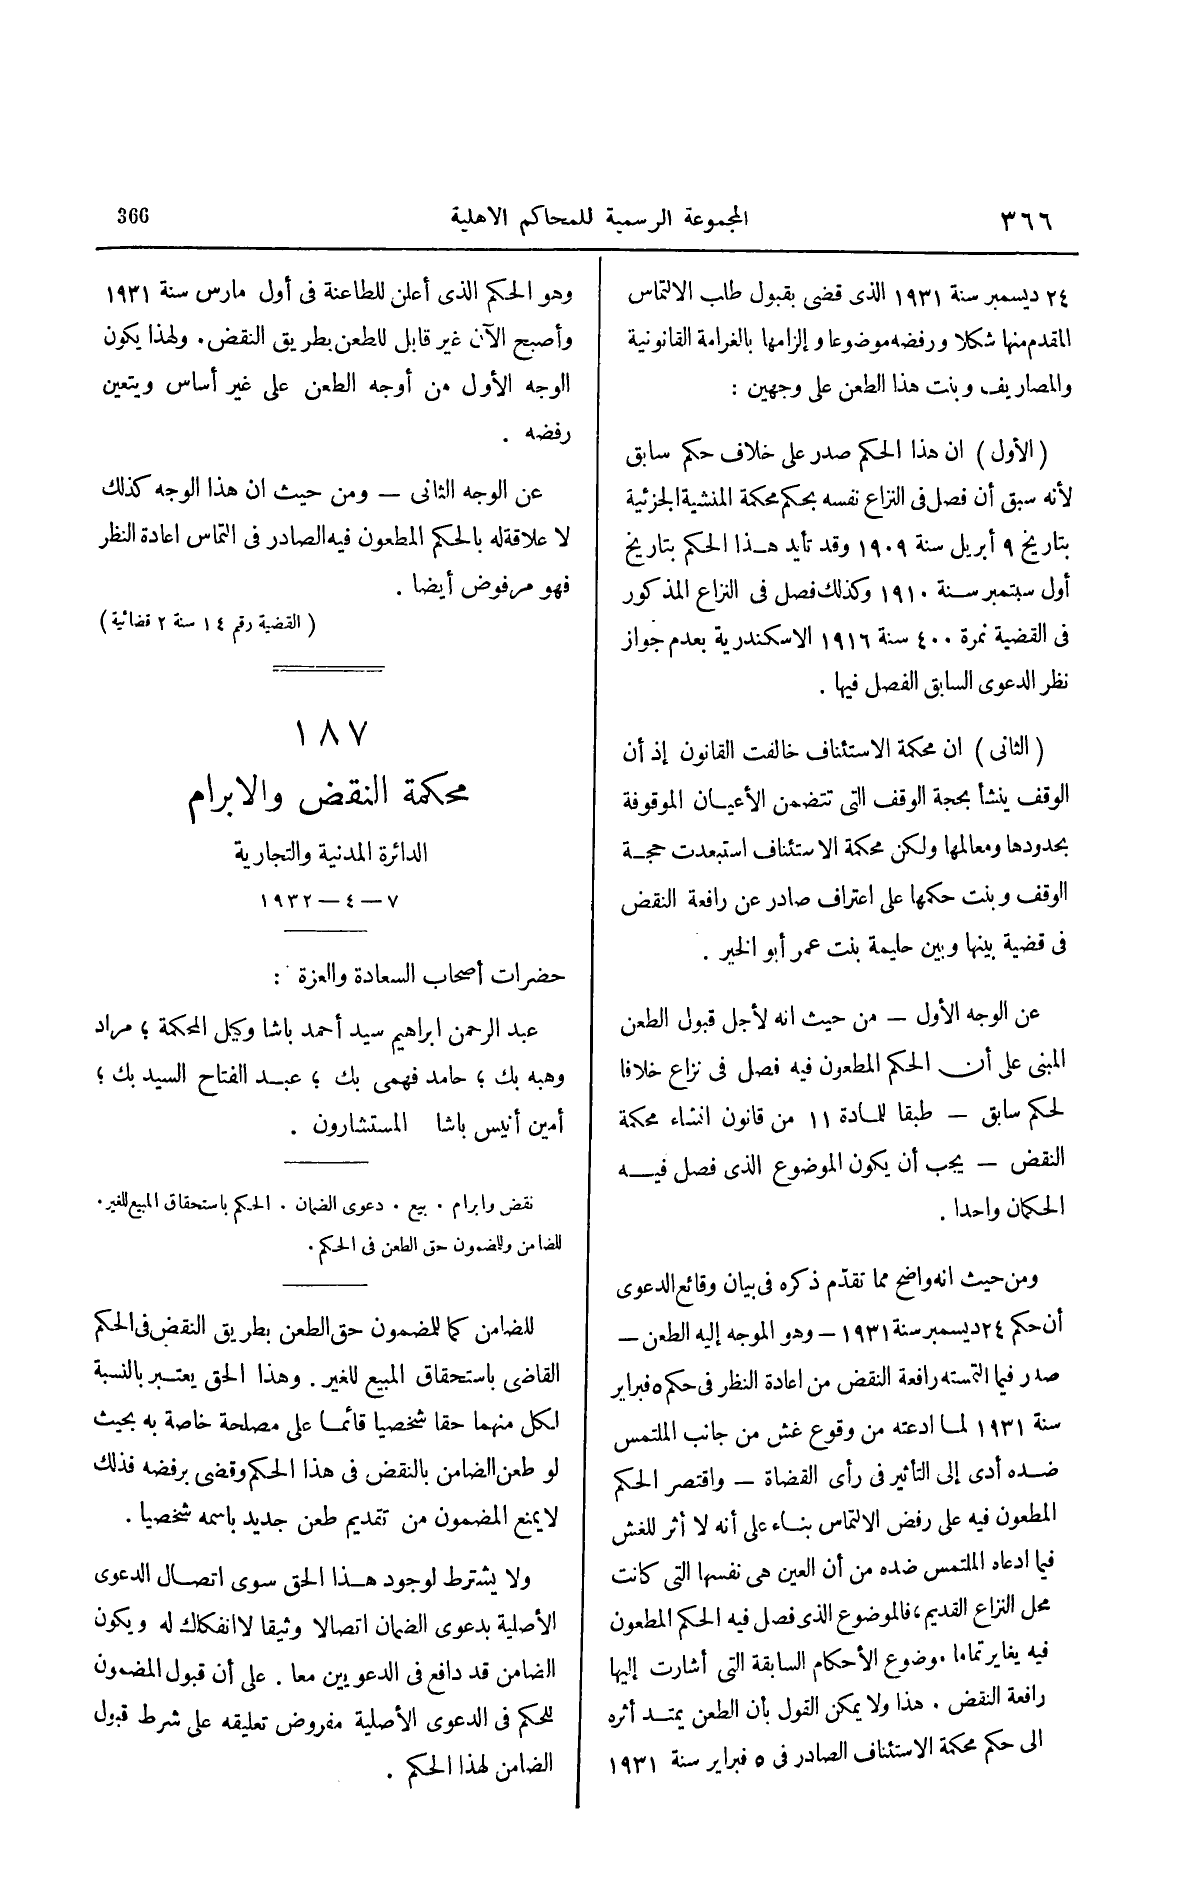 ٣٦٦ المجموعة الرسمية للمحاكم الاهلية 366
٢٤ ديسمبر سنة ١٩٣١ الذى قضى بقبول طلب الالتماس
المقدم منها شكلا ورفضه موضوعا وإلزامها بالغرامة القانونية
والمصاريف وبنت هذا الطعن على وجهين :
( الأول ) ان هذا الحكم صدر على خلاف حكم سابق
لأنه سبق أن فصل فى النزاع نفسه بحكم محكمة المنشية الجزئية
بتاريخ ٩ أبريل سنة ١٩٠٩ وقد تأيد هذا الحكم بتاريخ
أول سبتمبر سنة ١٩١٠ وكذلك فصل فى النزاع المذكور
فى القضية نمرة ٤٠٠ سنة ١٩١٦ الاسكندرية بعدم جواز
نظر الدعوى السابق الفصل فيها .
( الثانى ) ان محكمة الاستئناف خالفت القانون إذ أن
الوقف ينشأ بحجة الوقف التى تتضمن الأعيان الموقوفة
بحدودها ومعالمها ولكن محكمة الاستئناف استبعدت حجة
الوقف وبنت حكمها على اعتراف صادر عن رافعة النقض
فى قضية بينها وبين حليمة بنت عمر أبو الخير .
عن الوجه الأول — من حيث انه لأجل قبول الطعن
المبنى على أن الحكم المطعون فيه فصل فى نزاع خلافا
لحكم سابق — طبقا للمادة ١١ من قانون انشاء محكمة
النقض — يجب أن يكون الموضوع الذى فصل فيه
الحكمان واحدا .
ومن حيث انه واضح مما تقدّم ذكره فى بيان وقائع الدعوى
أن حكم ٢٤ ديسمبر سنة ١٩٣١ — وهو الموجه إليه الطعن —
صدر فيما التمسته رافعة النقض من اعادة النظر فى حكم ٥ فبراير
سنة ١٩٣١ لما ادعته من وقوع غش من جانب الملتمس
ضده أدى إلى التأثير فى رأى القضاة — واقتصر الحكم
المطعون فيه على رفض الالتماس بناء على أنه لا أثر للغش
فيما ادعاه الملتمس ضده من أن العين هى نفسها التى كانت
محل النزاع القديم، فالموضوع الذى فصل فيه الحكم المطعون
فيه يغاير تماما موضوع الأحكام السابقة التى أشارت إليها
رافعة النقض . هذا ولا يمكن القول بأن الطعن يمتد أثره
الى حكم محكمة الاستئناف الصادر فى ٥ فبراير سنة ١٩٣١
وهو الحكم الذى أعلن للطاعنة فى أول مارس سنة ١٩٣١
وأصبح الآن غير قابل للطعن بطريق النقض. ولهذا يكون
الوجه الأول من أوجه الطعن على غير أساس ويتعين
رفضه .
عن الوجه الثانى — ومن حيث ان هذا الوجه كذلك
لا علاقة له بالحكم المطعون فيه الصادر فى التماس اعادة النظر
فهو مرفوض أيضا .
( القضية رقم ١٤ سنة ٢ قضائية )
١٨٧
محكمة النقض والابرام
الدائرة المدنية والتجارية
٧ — ٤ — ١٩٣٢
حضرات أصحاب السعادة والعزة :
عبد الرحمن ابراهيم سيد أحمد باشا وكيل المحكمة ؛ مراد
وهبه بك ؛ حامد فهمى بك ؛ عبد الفتاح السيد بك ؛
أمين أنيس باشا المستشارون .
نقض وابرام . بيع . دعوى الضمان . الحكم باستحقاق المبيع للغير.
للضامن وللضمون حق الطعن فى الحكم .
للضامن كما للمضمون حق الطعن بطريق النقض فى الحكم
القاضى باستحقاق المبيع للغير . وهذا الحق يعتبر بالنسبة
لكل منهما حقا شخصيا قائما على مصلحة خاصة به بحيث
لو طعن الضامن بالنقض فى هذا الحكم وقضى برفضه فذلك
لا يمنع المضمون من تقديم طعن جديد باسمه شخصيا .
ولا يشترط لوجود هذا الحق سوى اتصال الدعوى
الأصلية بدعوى الضمان اتصالا وثيقا لا انفكاك له ويكون
الضامن قد دافع فى الدعويين معا . على أن قبول المضمون
للحكم فى الدعوى الأصلية مفروض تعليقه على شرط قبول
الضامن لهذا الحكم .